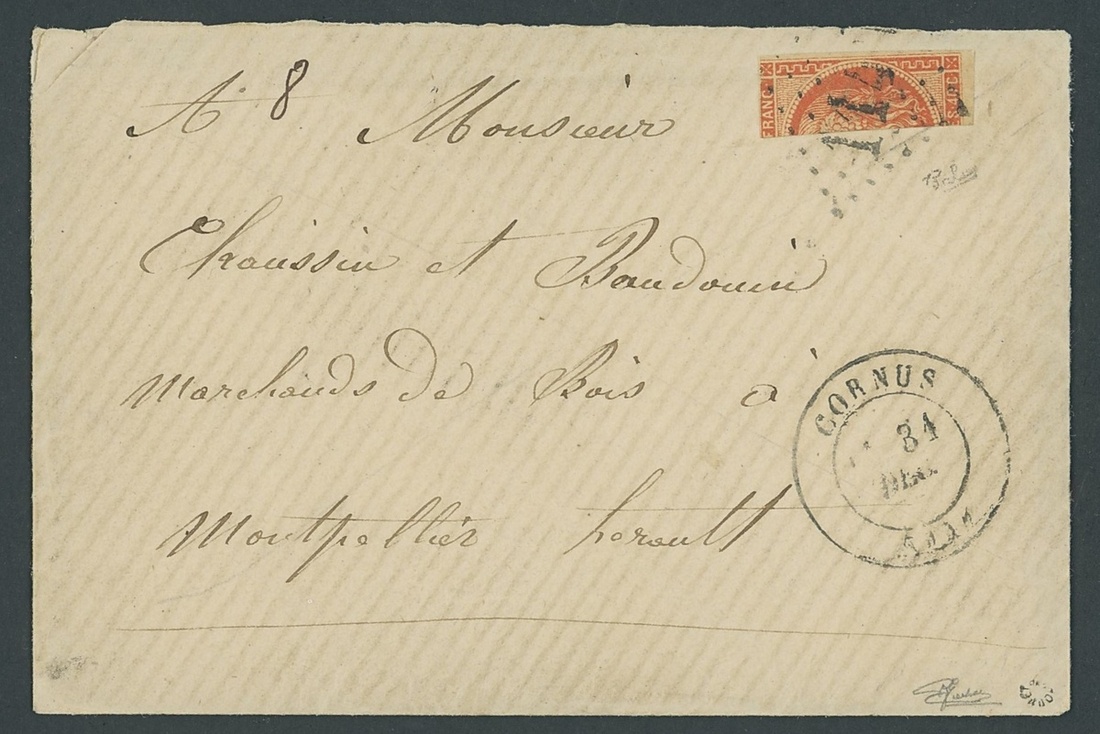 A 8 Monsieur
Chaussin et Baudouin
Marchands de Bois à
Montpellier herault
FRANC
CORNUS
31